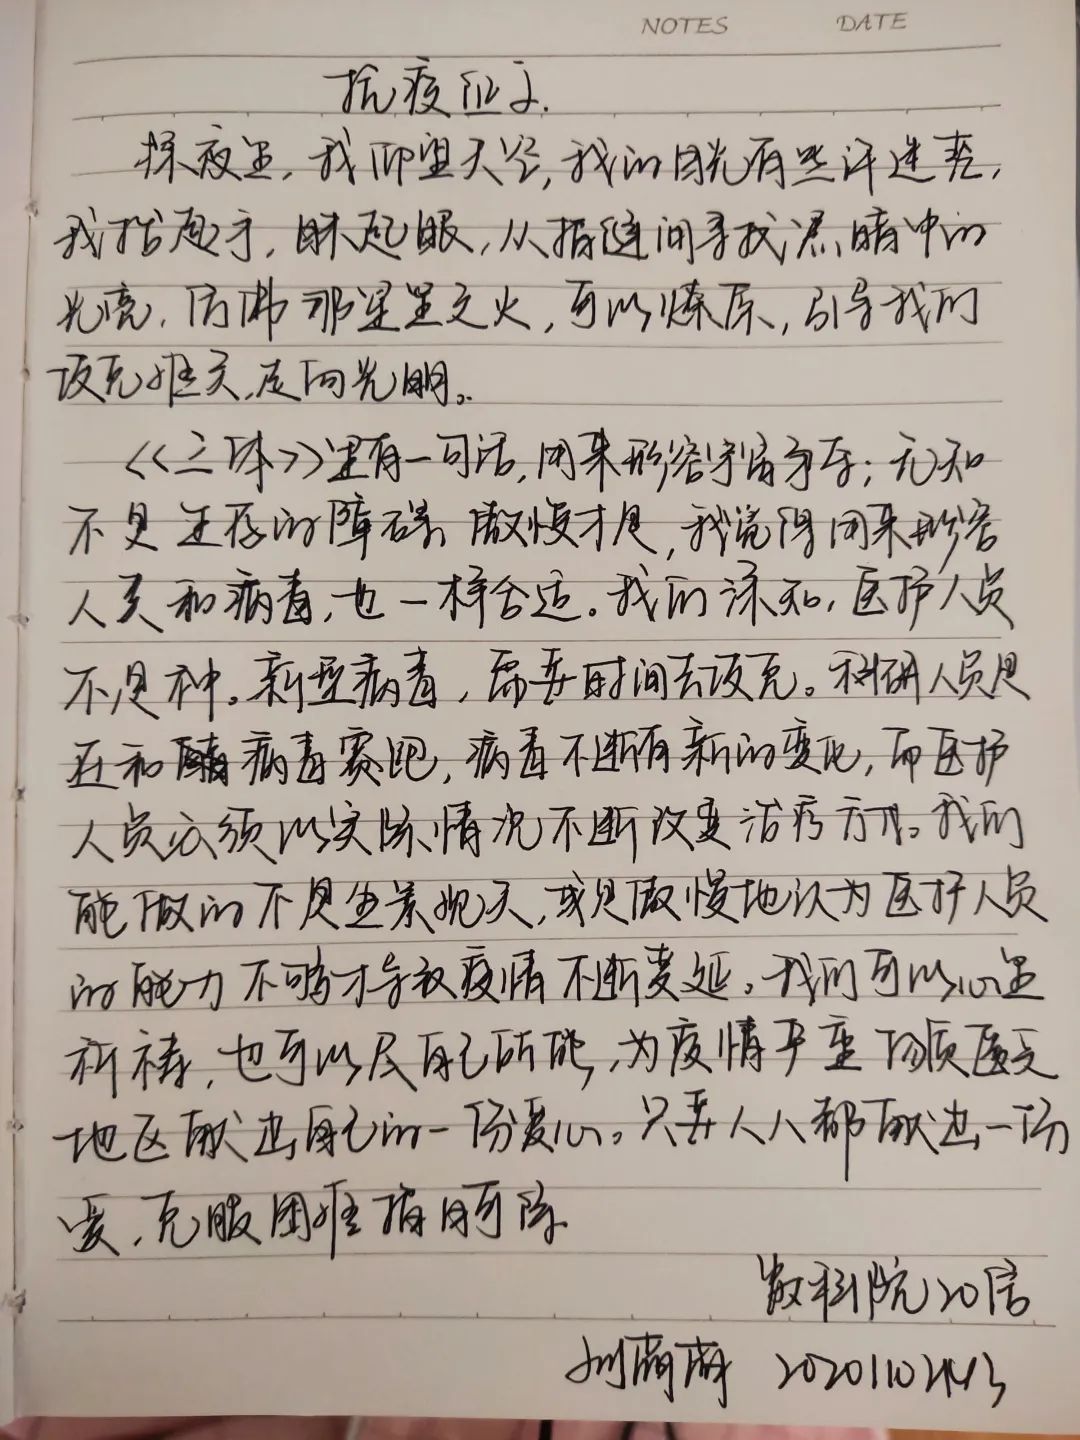 NOTES DATE
抗疫征文
深夜里，我仰望天空，我的目光有些许迷茫，
我抬起手，眯起眼，从指缝间寻找黑暗中的
光亮，仿佛那星星之火，可以燎原，引导我们
攻克难关，走向光明。
《三体》里有一句话，用来形容宇宙争存：无知
不是生存的障碍，傲慢才是，我觉得用来形容
人类和病毒，也一样合适。我们深知，医护人员
不是神。新型病毒，需要时间去攻克。科研人员是
在和病毒赛跑，病毒不断有新的变化，而医护
人员必须以实际情况不断改变治疗方法。我们
能做的不是坐井观天，或是傲慢地认为医护人员
的能力不够才导致疫情不断蔓延。我们可以心里
祈祷，也可以尽自己所能，为疫情严重物质匮乏
地区献出自己的一份爱心。只要人人都献出一份
爱，克服困难指日可待。
数科院20信
2020110244